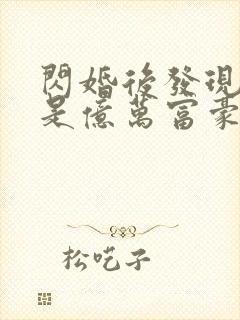 閃婚後發現
是億萬富豪
松吃子